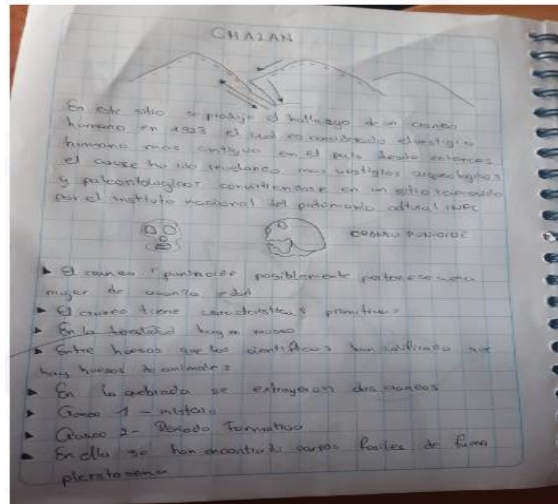 CHALAN
En este sitio se produjo el hallazgo de un craneo
humano en 1923 el cual es considerado el vestigio
humano mas antiguo en el pais desde entonces
el cause ha ido revelando mas vestigios arqueologicos
y paleontologicos convirtiendose en un sitio reconocido
por el instituto nacional del patrimonio cultural INPC
CRANEO PUNINOIDE
El craneo puninoide posiblemente pertenece a una
mujer de avanza edad
El craneo tiene caracteristicas primitivas
En la localidad hay un museo
Entre huesos que los cientificos han calificado que
hay huesos de animales
En la quebrada se extrageron dos craneos
Craneo 1 - misterio
Craneo 2 - Periodo Formativo
En ella se han encontrado varios fosiles de fauna
pleistosena